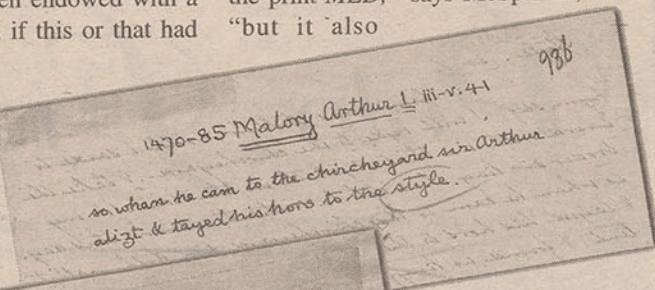 endowed with a
if this or that had
"but it also
98b
1470-85 Malory Arthur I. iii-v. 41
so whan he cam to the chircheyard sir Arthur
aliȝt & tayed his hors to the style.